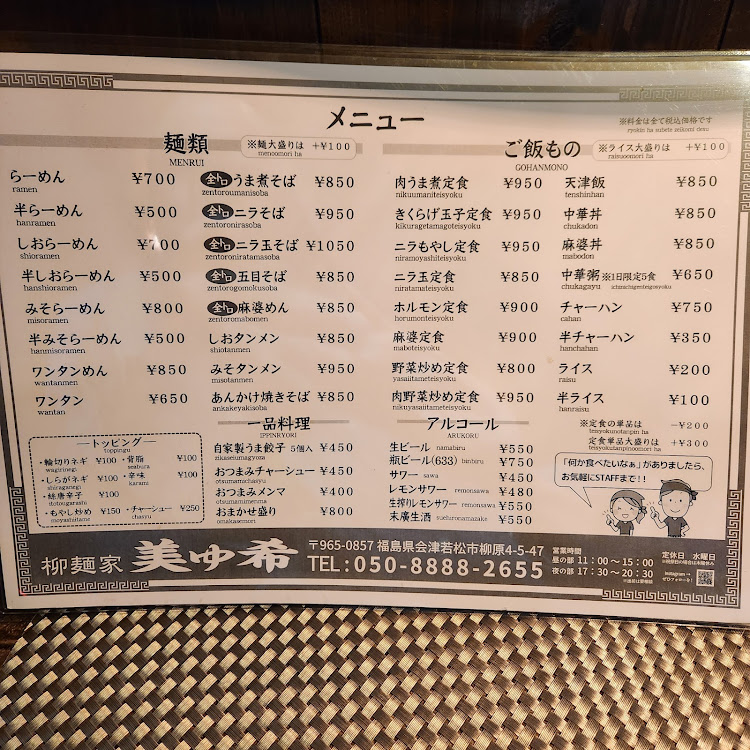 メニュー
※料金は全て税込価格です
ryokin ha subete zeikomi desu
麺類
MENRUI
※麺大盛りは +¥100
menoomori ha
らーめん ¥700
ramen
半らーめん ¥500
hanramen
しおらーめん ¥700
shioramen
半しおらーめん ¥500
hanshioramen
みそらーめん ¥800
misoramen
半みそらーめん ¥500
hanmisoramen
ワンタンめん ¥850
wantanmen
ワンタン ¥650
wantan
全トロうま煮そば ¥850
zentoroumanisoba
全トロニラそば ¥950
zentoronirasoba
全トロニラ玉そば ¥1050
zentoroniratamasoba
全トロ五目そば ¥850
zentorogomokusoba
全トロ麻婆めん ¥850
zentoromabomen
しおタンメン ¥850
shiotanmen
みそタンメン ¥950
misotanmen
あんかけ焼きそば ¥850
ankakeyakisoba
トッピング
toppingu
・輪切りネギ ¥100
wagirinegi
・しらがネギ ¥100
shiraganegi
・糸唐辛子 ¥100
itotougarashi
・もやし炒め ¥150
moyashitame
・背脂 ¥100
seabura
・辛味 ¥100
karami
・チャーシュー ¥250
chasyu
一品料理
IPPINRYORI
自家製うま餃子 5個入 ¥450
zikaseiumagyoza
おつまみチャーシュー ¥450
otsumamichasyu
おつまみメンマ ¥400
otsumamimenma
おまかせ盛り ¥800
omakasemori
ご飯もの
GOHANMONO
※ライス大盛りは +¥100
raisuoomori ha
肉うま煮定食 ¥950
nikuumaniteisyoku
きくらげ玉子定食 ¥950
kikuragetamagoteisyoku
ニラもやし定食 ¥950
niramoyashiteisyoku
ニラ玉定食 ¥850
niratamateisyoku
ホルモン定食 ¥900
horumonteisyoku
麻婆定食 ¥900
maboteisyoku
野菜炒め定食 ¥800
yasaiitameteisyoku
肉野菜炒め定食 ¥950
nikuyasaiitameteisyoku
天津飯 ¥850
tenshinhan
中華丼 ¥850
chukadon
麻婆丼 ¥850
mabodon
中華粥 ※1日限定5食 ¥650
chukagayu
チャーハン ¥750
cahan
半チャーハン ¥350
hanchahan
ライス ¥200
raisu
半ライス ¥100
hanraisu
※定食の単品は −¥200
teisyokunotanpin ha
定食単品大盛りは +¥300
teisyokutanpinoomori ha
アルコール
ARUKORU
生ビール namabiru ¥550
瓶ビール(633) binbiru ¥750
サワー sawa ¥450
レモンサワー remonsawa ¥480
生搾りレモンサワー remonsawa ¥550
末廣生酒 suehironamazake ¥550
「何か食べたいなぁ」がありましたら、
お気軽にSTAFFまで!!
柳麺家 美ゆ希
〒965-0857 福島県会津若松市柳原4-5-47
TEL:050-8888-2655
営業時間
昼の部 11:00〜15:00
夜の部 17:30〜20:30
定休日 水曜日
Instagram→
ぜひフォローを!